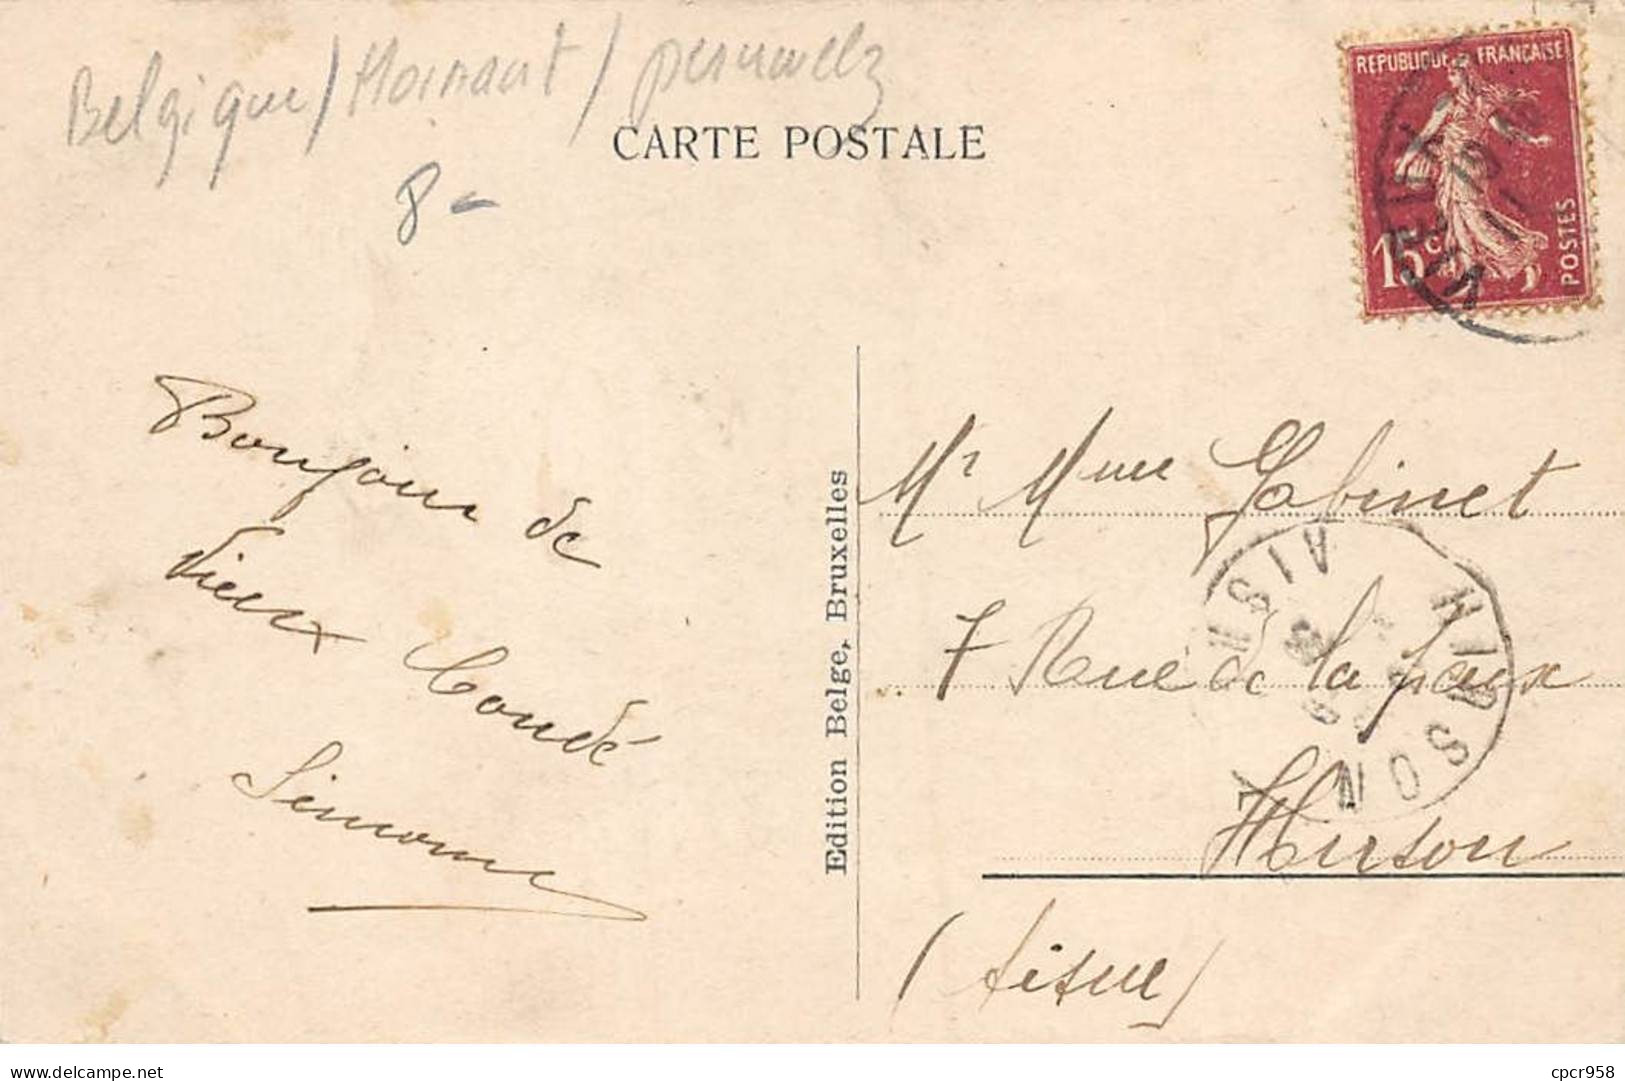 Belgique / Hainaut / peruwelz
8 -
CARTE POSTALE
REPUBLIQUE FRANÇAISE
15c
POSTES
Bonjour de
Vieux Condé
Simonne
Edition Belge, Bruxelles
Mr Mme Gabinet
7 Rue de la paix
Hirson
(Aisne)
HIRSON
AISN
delcampe.net
cpcr958